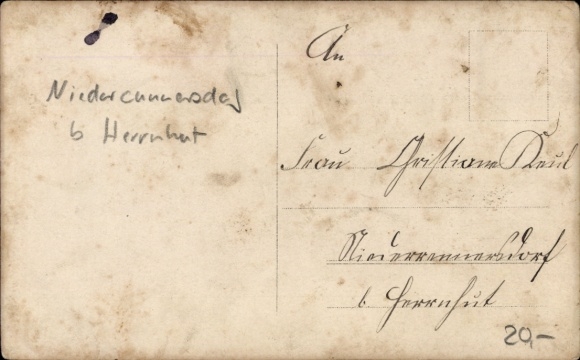 Niedercunnersdorf
b Herrnhut
An
Frau Christiane Keul
Niederrennersdorf
b. Herrnhut
20,-